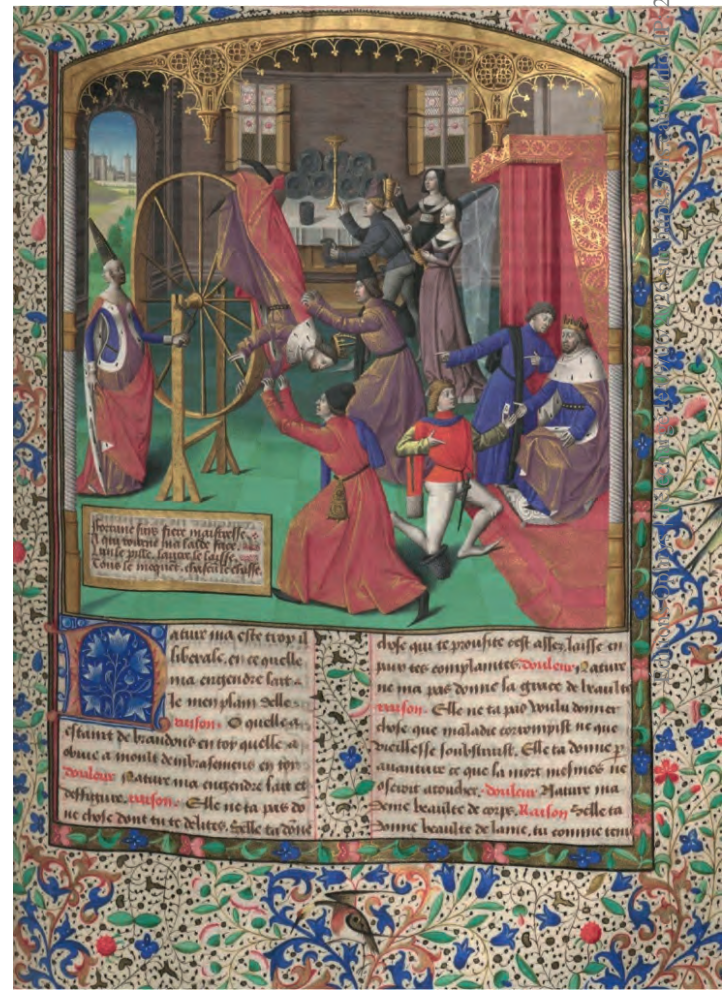 fortune suys fiere maistresse
A qui tourne ma laide face
Tous le moquet chascū le chasse
ature ma este trop il
liberale, en ce quelle
ma engendre lait
le men plain delle
raison. O quelle a
estaint de brandons en toy quelle a
obuie a moult dembrasemens en toy
douleur Nature ma engendre lait et
deffigure. raison. Elle ne ta pas do
ne chose dont tu te delites. Elle ta dōne
chose qui te proufite cest assez, laisse en
paix tes complaintes. douleur Nature
ne ma pas donne la grace de beaulte
raison. Elle ne ta pas voulu donner
chose que maladie corrompist ne que
vieillesse soubstraist. Elle ta donne p
auanture ce que la mort mesmes ne
oseroit atoucher. douleur Nature ma
denie beaulte de corps. Raison Selle ta
donne beaulte de lame, tu comme tenu